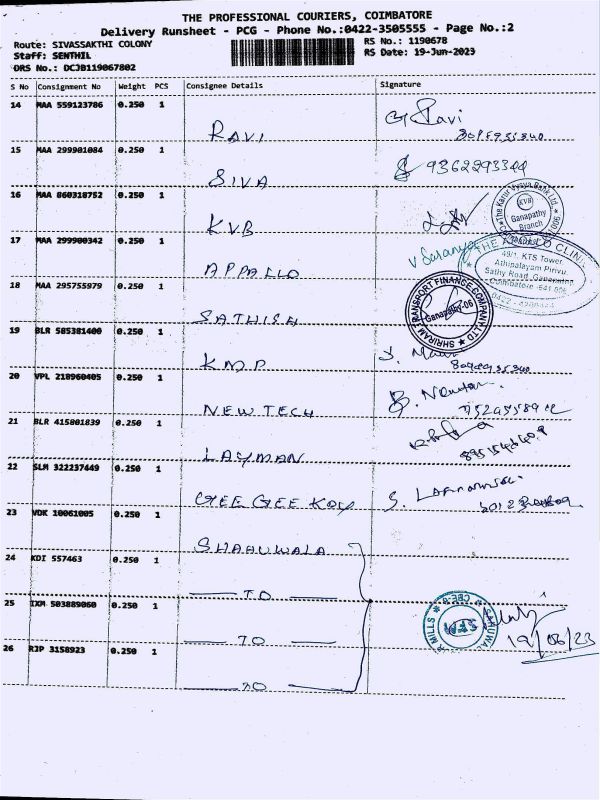 THE PROFESSIONAL COURIERS, COIMBATORE
Delivery Runsheet - PCG - Phone No.:0422-3505555 - Page No.:2
Route: SIVASSAKTHI COLONY
RS No.: 1190678
Staff: SENTHIL
RS Date: 19-Jun-2023
DRS No.: DCJB119067802
S No Consignment No Weight PCS Consignee Details Signature
14 MAA 559123786 0.250 1
RAVI
G Ravi
15 MAA 299901084 0.250 1
SIVA
9362293344
16 MAA 860318752 0.250 1
KVB
The Karur Vysya Bank Ltd.
KVB
Ganapathy
Branch
17 MAA 299900342 0.250 1
APPALLO
V Saranya
THE APOLLO CLINIC
49/1, KTS Tower,
Athipalayam Pirivu,
Sathy Road, Ganapathy,
Coimbatore -641 006
18 MAA 295755979 0.250 1
SATHISH
SHRIRAM TRANSPORT FINANCE COMPANY LTD
Ganapathy-06
19 BLR 585381400 0.250 1
KMP
20 VPL 218960405 0.250 1
NEWTECH
21 BLR 415801839 0.250 1
LAYMAN
22 SLM 322237449 0.250 1
GEE GEE KAY
23 VDK 10061005 0.250 1
SHAHUWALA
24 KDI 557463 0.250 1
— TO —
25 IXM 503889060 0.250 1
— TO —
MILLS
CBE-6
19/06/23
26 RJP 3158923 0.250 1
— TO —